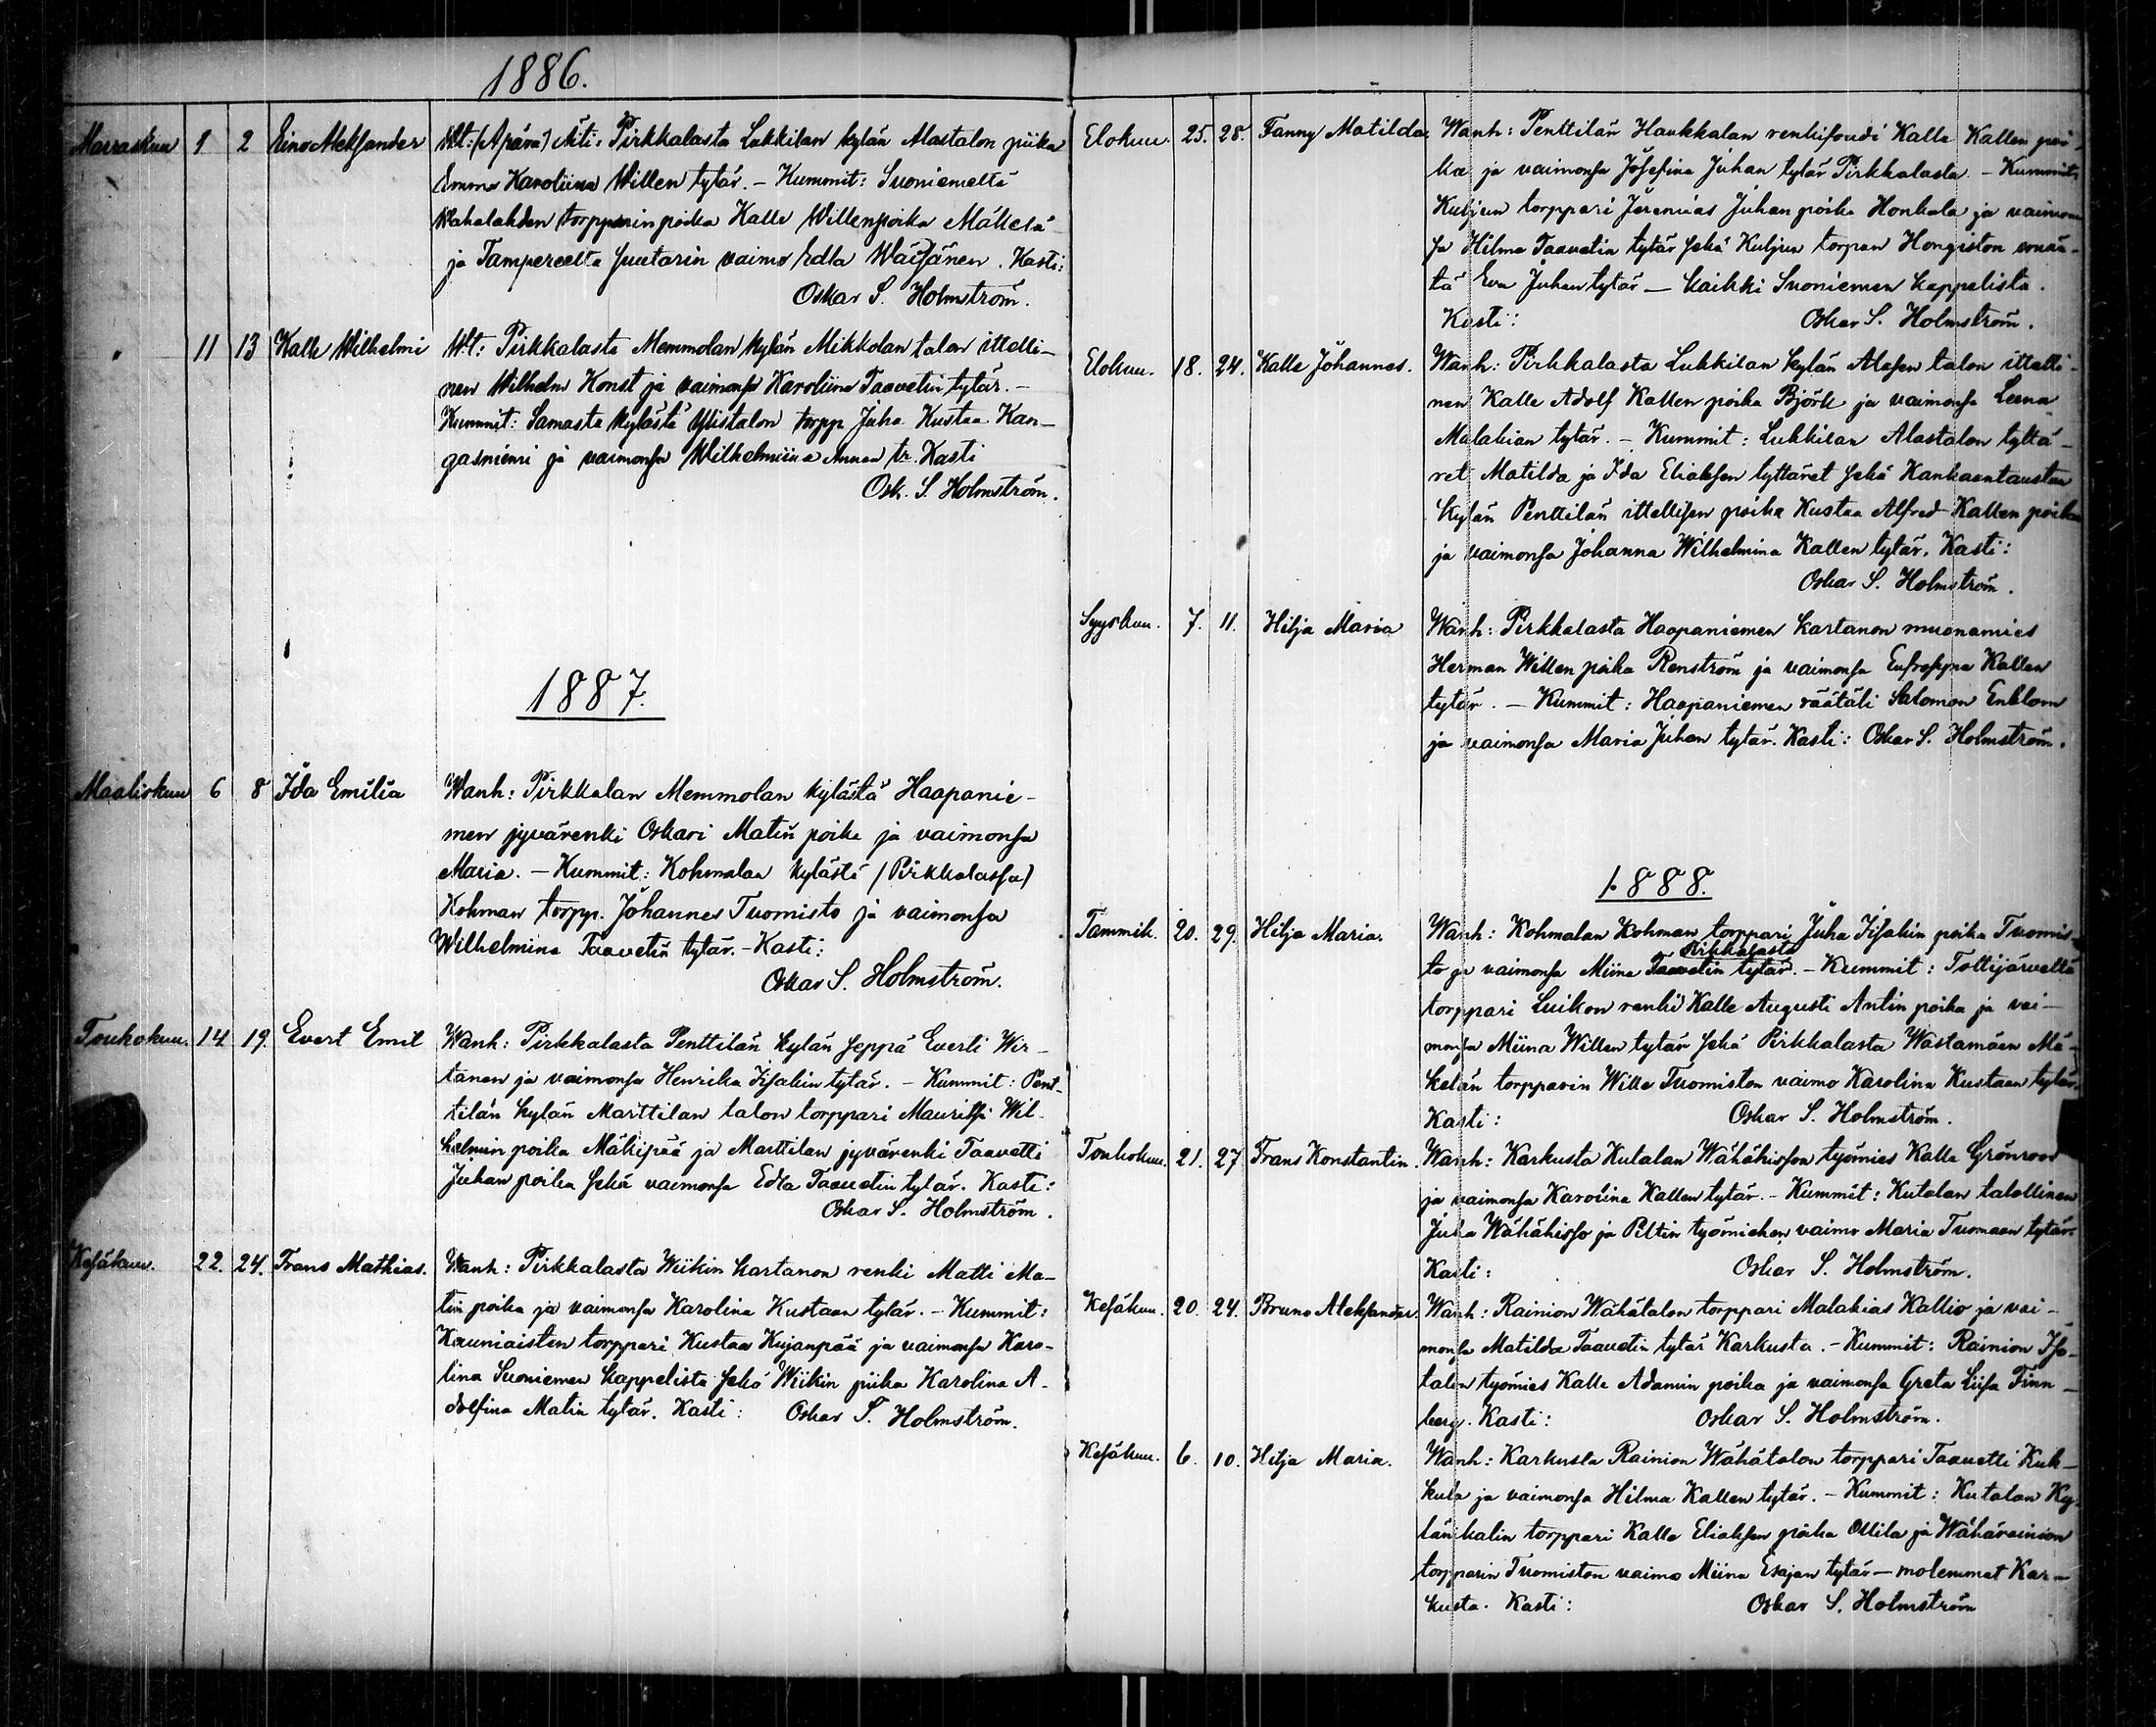 1886.
Marraskuu 1 2 Eino Aleksander Wt: (Äpärä) Äiti: Pirkkalasta Lukkilan kylän Alastalon piika
Emma Karoliina Willen tytär. — Kummit: Suoniemeltä
Wahalahden torpparin poika Kalle Willenpoika Mäkelä
ja Tampereelta suutarin vaimo Edla Wäisänen. Kasti:
Oskar S. Holmström.
" 11 13 Kalle Wilhelmi Wt: Pirkkalasta Memmolan kylän Mikkolan talon ittelli-
nen Wilhelm Konst ja vaimonsa Karoliina Taavetin tytär. —
Kummit: Samasta kylästä Ylistalon torpp. Juha Kustaa Kan-
gasniemi ja vaimonsa Wilhelmiina Annan tr. Kasti
Osk. S. Holmström.
1887.
Maaliskuu 6 8 Ida Emilia Wanh: Pirkkalan Memmolan kylästä Haapanie-
men jyvärenki Oskari Matin poika ja vaimonsa
Maria. — Kummit: Kohmalan kylästä (Pirkkalassa)
Kohman torpp. Johannes Tuomisto ja vaimonsa
Wilhelmina Taavetin tytär. — Kasti:
Oskar S. Holmström.
Toukokuu. 14 19. Evert Emil Wanh: Pirkkalasta Penttilän kylän seppä Everti Wir-
tanen ja vaimonsa Henrika Iisakin tytär. — Kummit: Pent-
tilän kylän Marttilan talon torppari Mauritsi Wil-
helmin poika Mäkipää ja Marttilan jyvärenki Taavetti
Juhan poika sekä vaimonsa Edla Taavetin tytär. Kasti:
Oskar S. Holmström.
Kesäkuu. 22. 24. Frans Mathias. Wanh: Pirkkalasta Wiikin kartanon renki Matti Ma-
tin poika ja vaimonsa Karolina Kustaan tytär. — Kummit:
Kauniaisten torppari Kustaa Kujanpää ja vaimonsa Karo-
lina Suoniemen kappelista sekä Wiikin piika Karolina A-
dolfina Matin tytär. Kasti: Oskar S. Holmström.
Elokuu. 25. 28. Fanny Matilda Wanh: Penttilän Haukkalan renkisoudi Kalle Kallen poi-
ka ja vaimonsa Josefina Juhan tytär Pirkkalasta. — Kummit:
Kuljun torppari Jeremias Juhan poika Honkala ja vaimon-
sa Hilma Taavetin tytär sekä Kuljun torpan Hongiston emän-
tä Eva Juhan tytär — kaikki Suoniemen kappelista.
Kasti: Oskar S. Holmström.
Elokuu. 18. 24. Kalle Johannes. Wanh: Pirkkalasta Lukkilan kylän Alasen talon ittelli-
nen Kalle Adolf Kallen poika Björk ja vaimonsa Leena
Malakian tytär. — Kummit: Lukkilan Alastalon tyttä-
ret Matilda ja Ida Eliaksen tyttäret sekä Kankaantaustan
kylän Penttilän ittellisen poika Kustaa Alfred Kallen poika
ja vaimonsa Johanna Wilhelmina Kallen tytär. Kasti:
Oskar S. Holmström.
Syyskuu. 7. 11. Hilja Maria Wanh: Pirkkalasta Haapaniemen kartanon muonamies
Herman Willen poika Renström ja vaimonsa Eufrosyna Kallen
tytär. — Kummit: Haapaniemen räätäli Salomon Enblom
ja vaimonsa Maria Juhan tytär. Kasti: Oskar S. Holmström.
1888.
Tammik. 20. 29. Hilja Maria. Wanh: Kohmalan Kohman torppari Juha Iisakin poika Tuomis-
Pirkkalasta
to ja vaimonsa Miina Taavetin tytär. — Kummit: Tottijärveltä
torppari Luikon renki Kalle Augusti Antin poika ja vai-
monsa Miina Willen tytär sekä Pirkkalasta Wastamäen Mä-
kelän torpparin Wille Tuomiston vaimo Karolina Kustaan tytär.
Kasti: Oskar S. Holmström.
Toukokuu. 21. 27 Frans Konstantin. Wanh: Karkusta Kutalan Wähähisson työmies Kalle Grönroos
ja vaimonsa Karoliina Kallen tytär. — Kummit: Kutalan talollinen
Juha Wähähisso ja Piltin työmiehen vaimo Maria Tuomaan tytär.
Kasti: Oskar S. Holmström.
Kesäkuu. 20. 24. Bruno Aleksander. Wanh: Rainion Wähätalon torppari Malakias Kallio ja vai-
monsa Matilda Taavetin tytär Karkusta. — Kummit: Rainion Iso-
talon työmies Kalle Adamin poika ja vaimonsa Greta Liisa Finn-
berg. Kasti: Oskar S. Holmström.
Kesäkuu. 6. 10. Hilja Maria. Wanh: Karkusta Rainion Wähätalon torppari Taavetti Kuk-
kula ja vaimonsa Hilma Kallen tytär. — Kummit: Kutalan Ky-
länkalin torppari Kalle Eliaksen poika Ollila ja Wähärainion
torpparin Tuomiston vaimo Miina Esajan tytär — molemmat Kar-
kusta. Kasti: Oskar S. Holmström